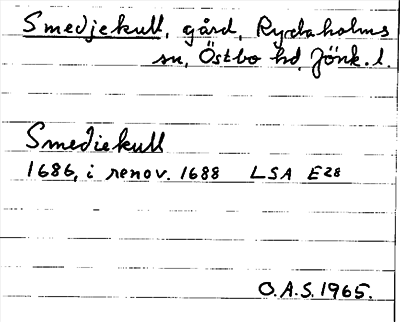 Smedjekull, gård, Rydaholms
sn, Östbo hd, Jönk. l.
Smediekull
1686, i renov. 1688 LSA E28
O.A.S. 1965.